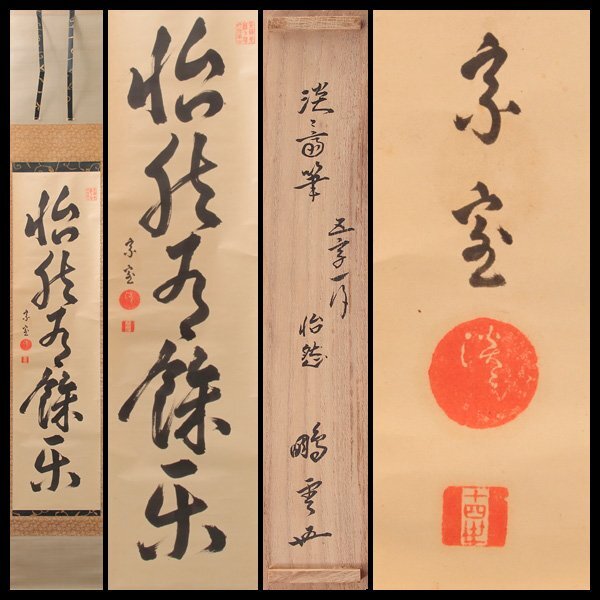 怡然有餘楽
宗室
怡然有餘楽
宗室
淡々斎筆
五字一行
怡然
鵬雲斎
宗室
淡々
十四世